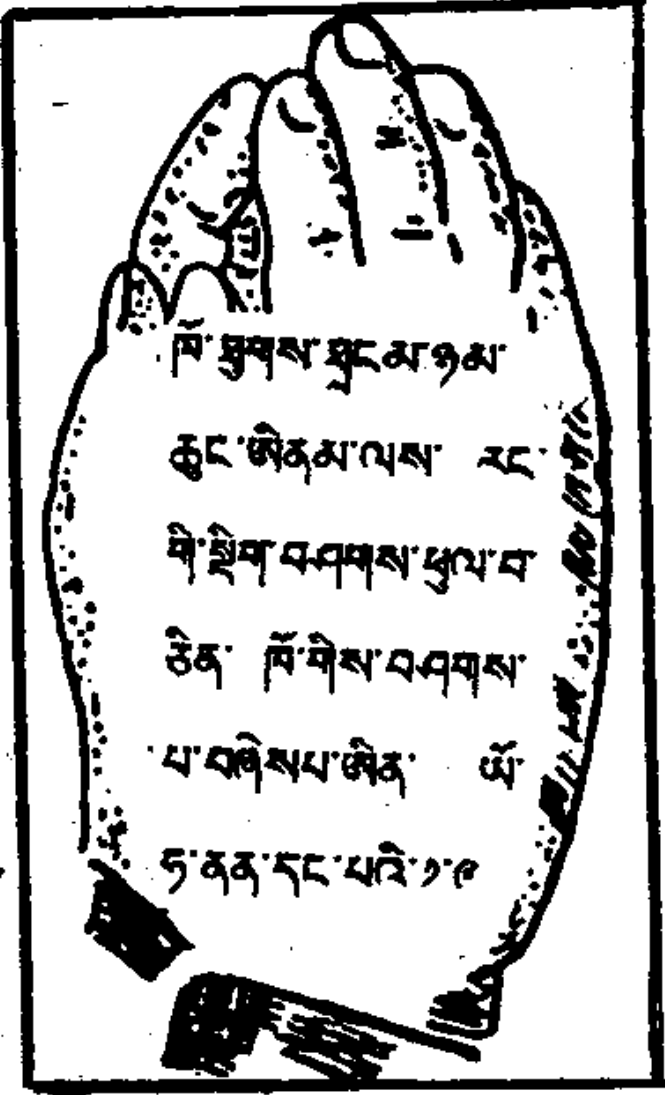 ཁོ་ཐུགས་ཧྲང་མ་ཉམ་
ཆུང་ཨིནམ་ལས་ རང་
གི་སྡིག་བཤགས་ཕུལ་བ་
ཅིན་ ཁོ་གིས་བཤགས་
པ་བཞེསཔ་ཨིན་ ཡོ་
ཧ་ནན་དང་པའི་༡་༩